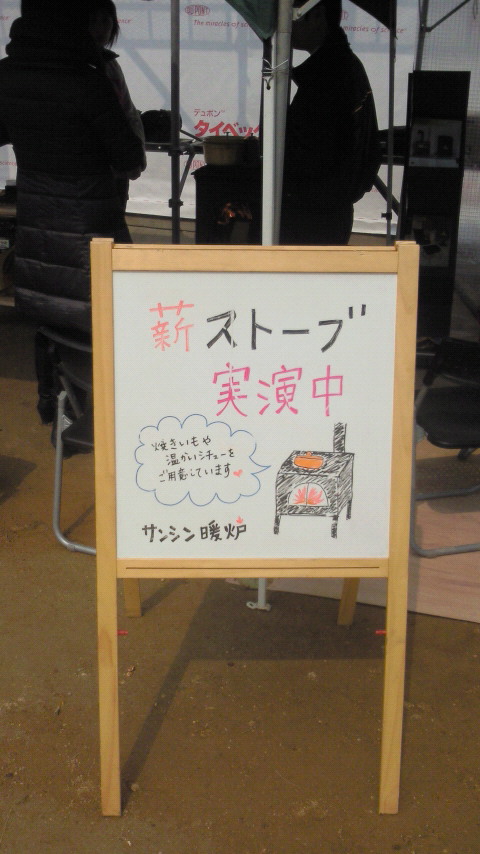 DUPONT
The miracles of science
DUPONT
The miracles of
デュポン
タイベック
薪ストーブ
実演中
焼きいもや
温かいシチューを
ご用意しています
サンシン暖炉